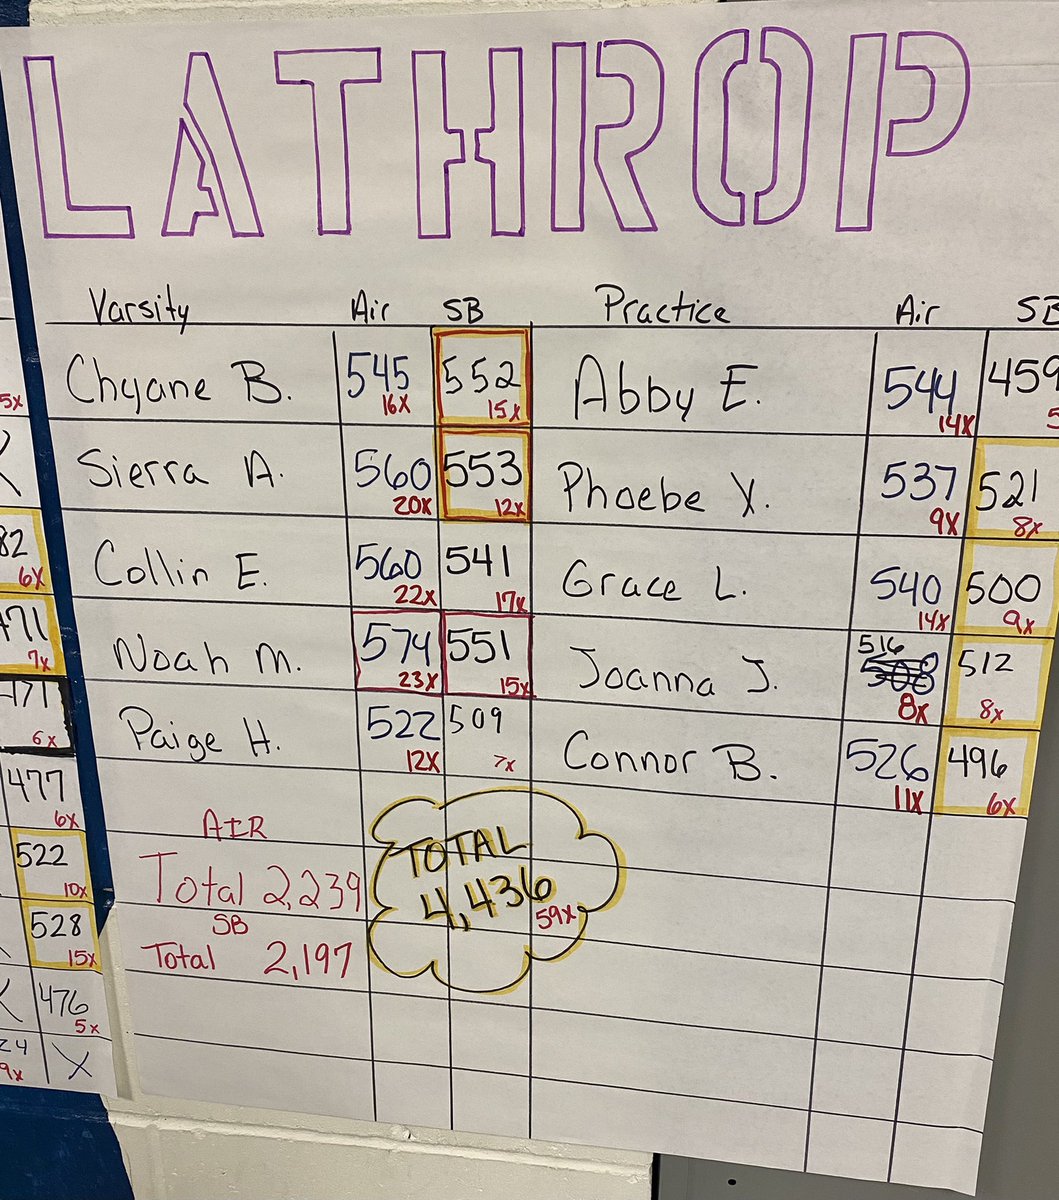 LATHROP
Varsity Air SB Practice Air SB
Chyane B. 545 16X 552 15X Abby E. 544 14X 459 5
Sierra A. 560 20X 553 12X Phoebe Y. 537 9X 521 8X
Collin E. 560 22X 541 17X Grace L. 540 14X 500 9X
Noah M. 574 23X 551 15X Joanna J. 516 508 8X 512 8X
Paige H. 522 12X 509 7X Connor B. 526 11X 496 6X
AIR
Total 2,239
SB
Total 2,197
TOTAL
4,436
59X
5X
X
82 6X
471 7X
471 6X
477 6X
522 10X
528 15X
476 5X
24 9X X